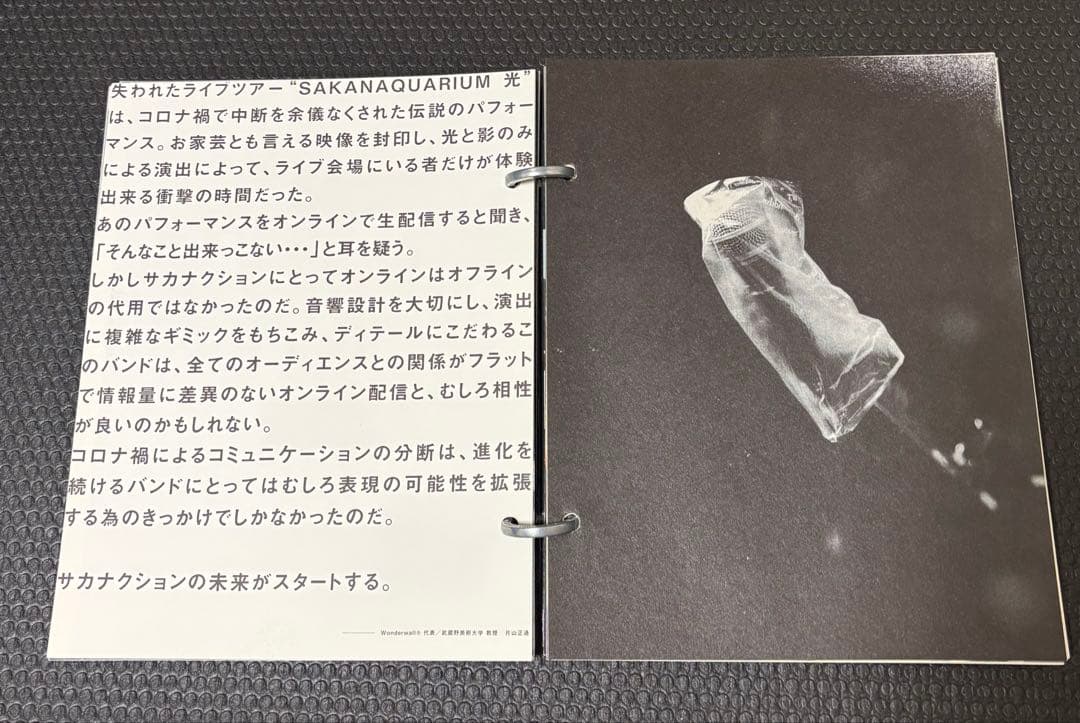 失われたライブツアー“SAKANAQUARIUM 光”
は、コロナ禍で中断を余儀なくされた伝説のパフォー
マンス。お家芸とも言える映像を封印し、光と影のみ
による演出によって、ライブ会場にいる者だけが体験
出来る衝撃の時間だった。
あのパフォーマンスをオンラインで生配信すると聞き、
「そんなこと出来っこない・・・」と耳を疑う。
しかしサカナクションにとってオンラインはオフライン
の代用ではなかったのだ。音響設計を大切にし、演出
に複雑なギミックをもちこみ、ディテールにこだわるこ
のバンドは、全てのオーディエンスとの関係がフラット
で情報量に差異のないオンライン配信と、むしろ相性
が良いのかもしれない。
コロナ禍によるコミュニケーションの分断は、進化を
続けるバンドにとってはむしろ表現の可能性を拡張
する為のきっかけでしかなかったのだ。
サカナクションの未来がスタートする。
Wonderwall® 代表／武蔵野美術大学 教授 片山正通